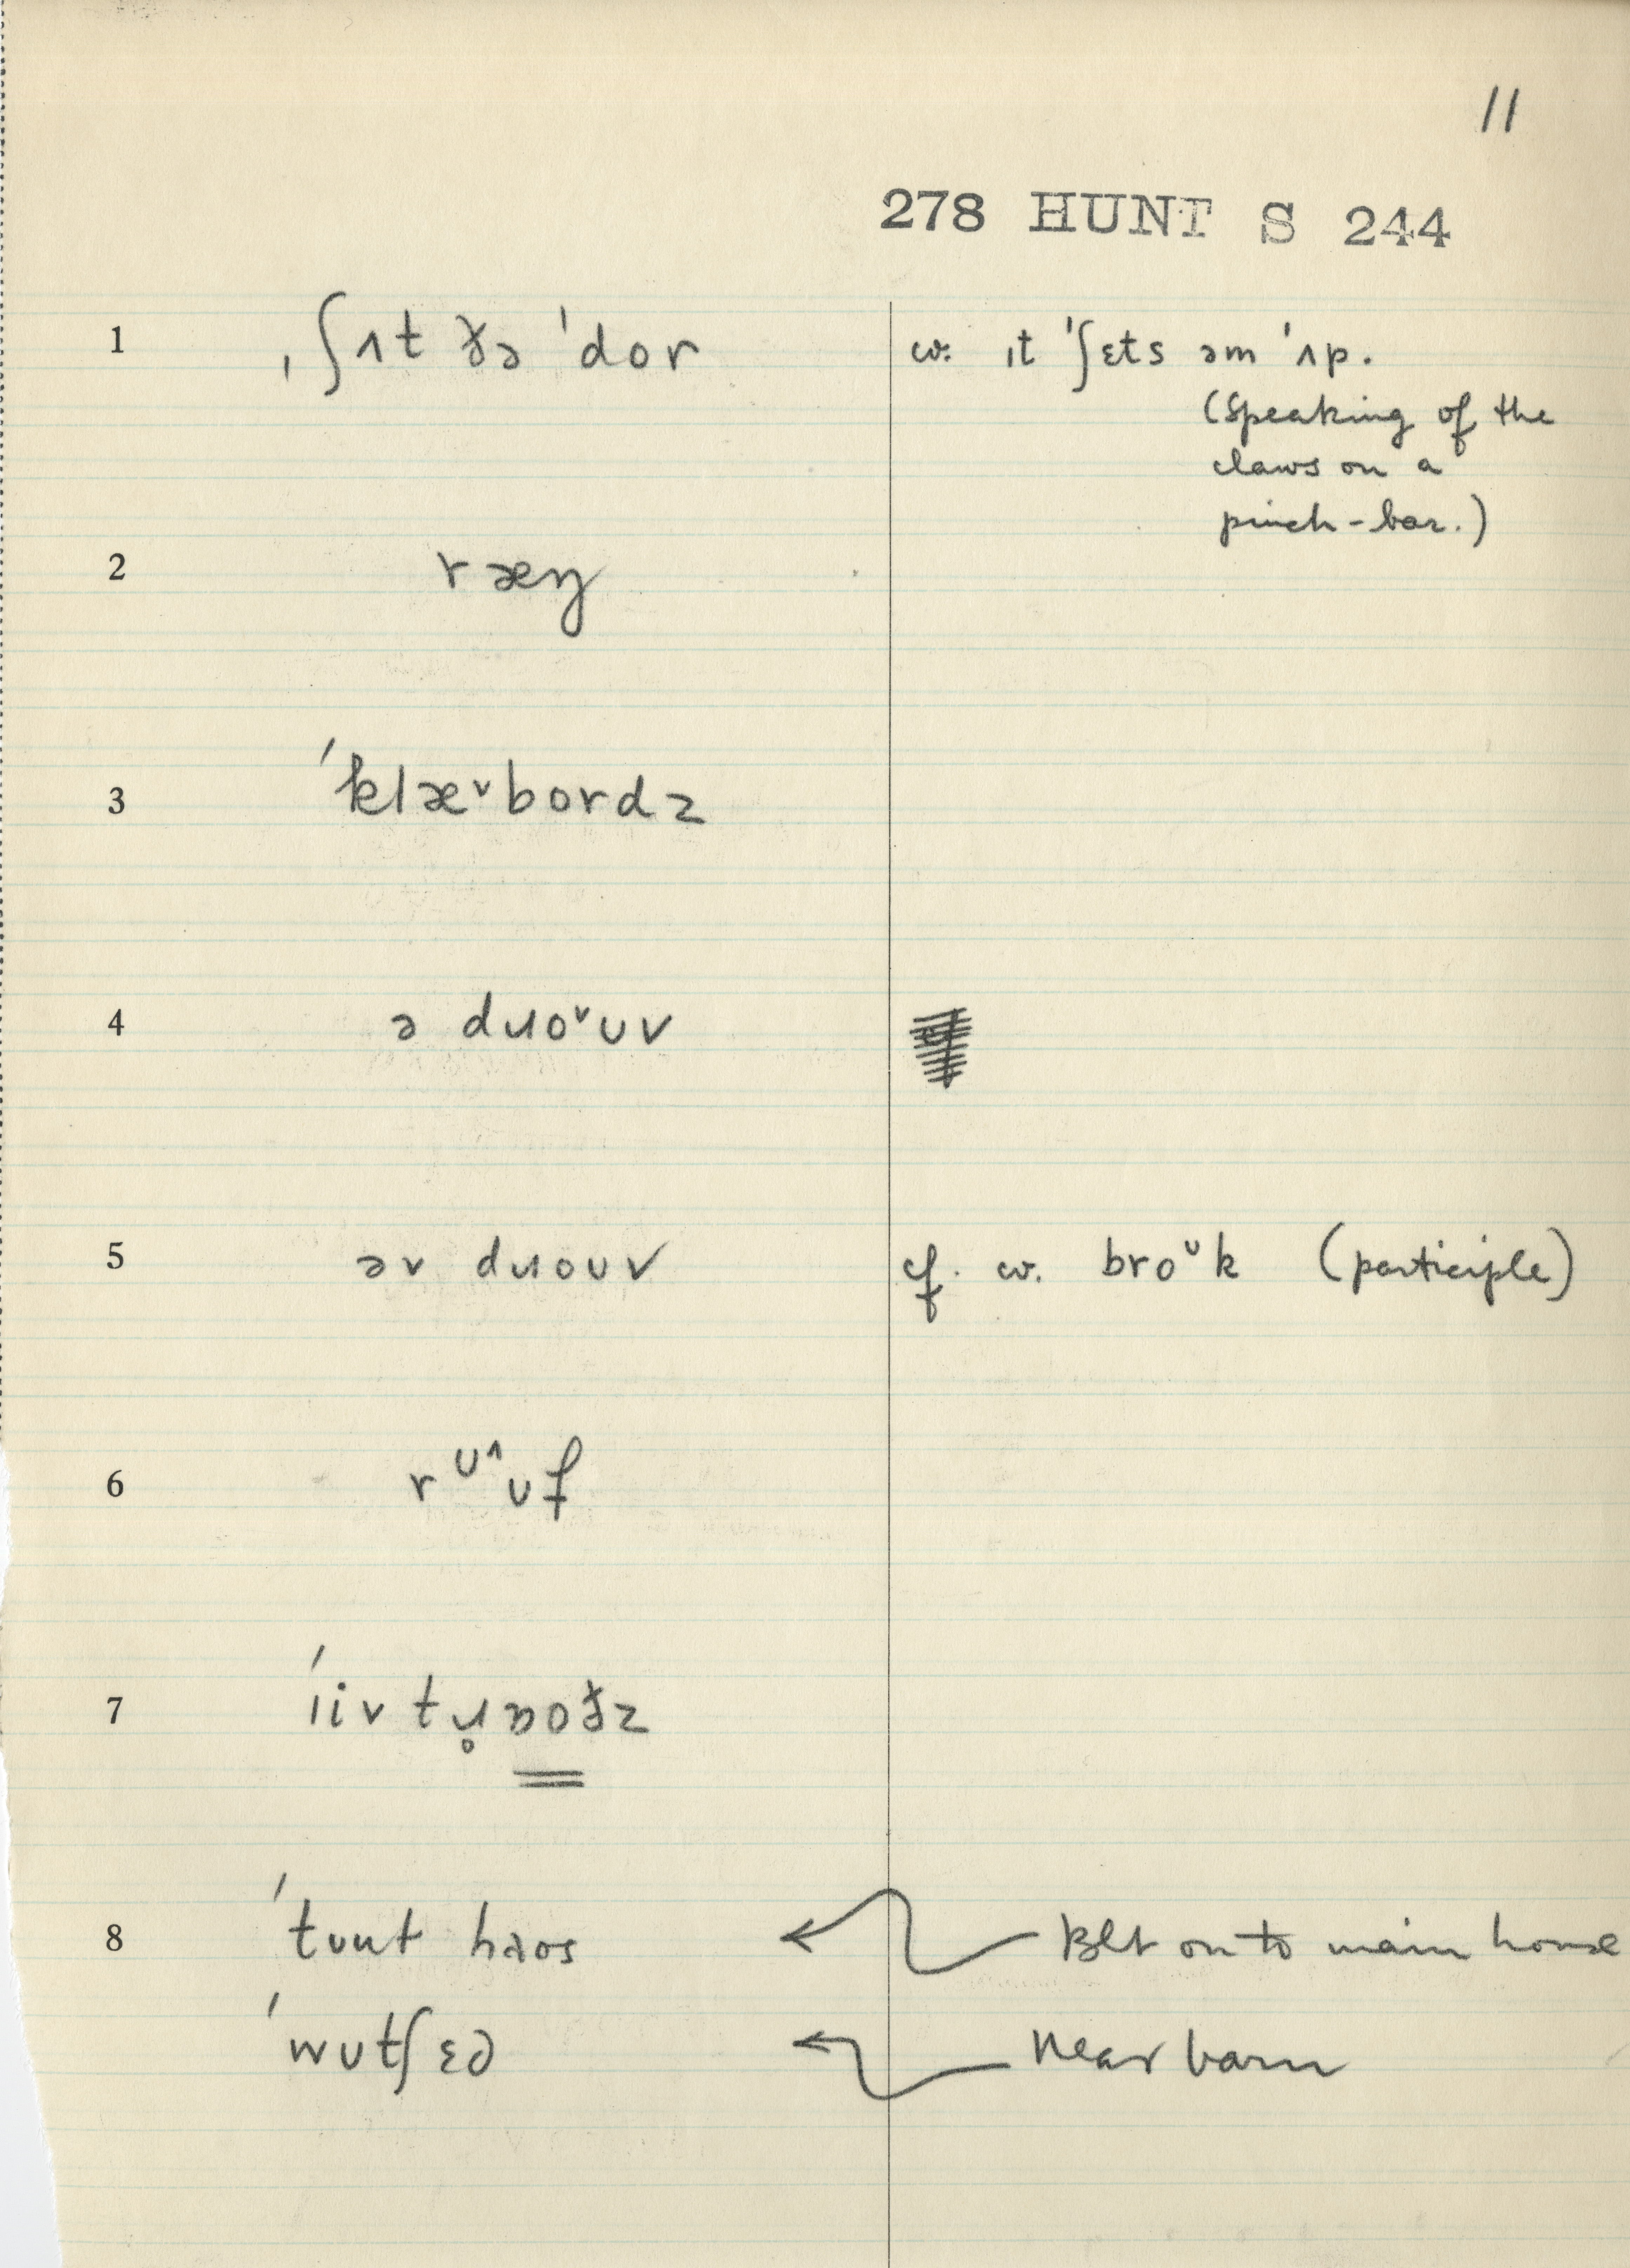 11
278 HUNT S 244
1 ˌʃʌt ðə ˈdor cv. ɪt ˈʃɛts əm ˈʌp.
(Speaking of the
claws on a
pinch-bar.)
2 ræŋ
3 ˈklæ˅bordz
4 ə dɹo˅ʊv
5 əv dɹoʊv cf. cv. bro˅k (participle)
6 rᶷ^ʊf
7 ˈiiv tɹ̥ɒoðz
8 ˈtʊɹt haos ← Blt on to main house
ˈwʊtʃɛd ← Near barn